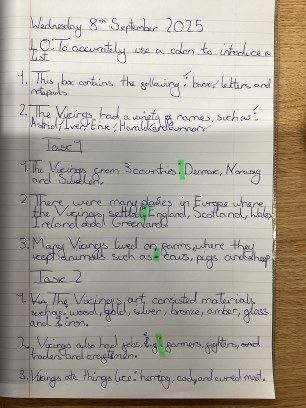 Wednesday 8th September 2025
LO: To accurately use a colon to introduce a
list.
1. This box contains the following: books, letters and
notepads
2. The Vicings had a variety of names, such as:
Astrid, Iver, Eric, Harald and Gunnor
Task 1
1. The Vicings from 3 countries: Denmark, Norway
and Sweden.
2. There were many places in Europe where
the Vicings settled: England, Scotland, Wales
Ireland and Greenland
3. Many Vicings lived on farms, where they
kept animals such as: cows, pigs and sheep
Task 2
1. The Vicings, art, consisted materials
such as: wood, gold, silver, bronze, amber, glass
and iron.
2. Vicings also had jobs, e.g: farmers, fighters, and
traders and craftsmen.
3. Vikings ate things like: herring, cod, and cured meat.